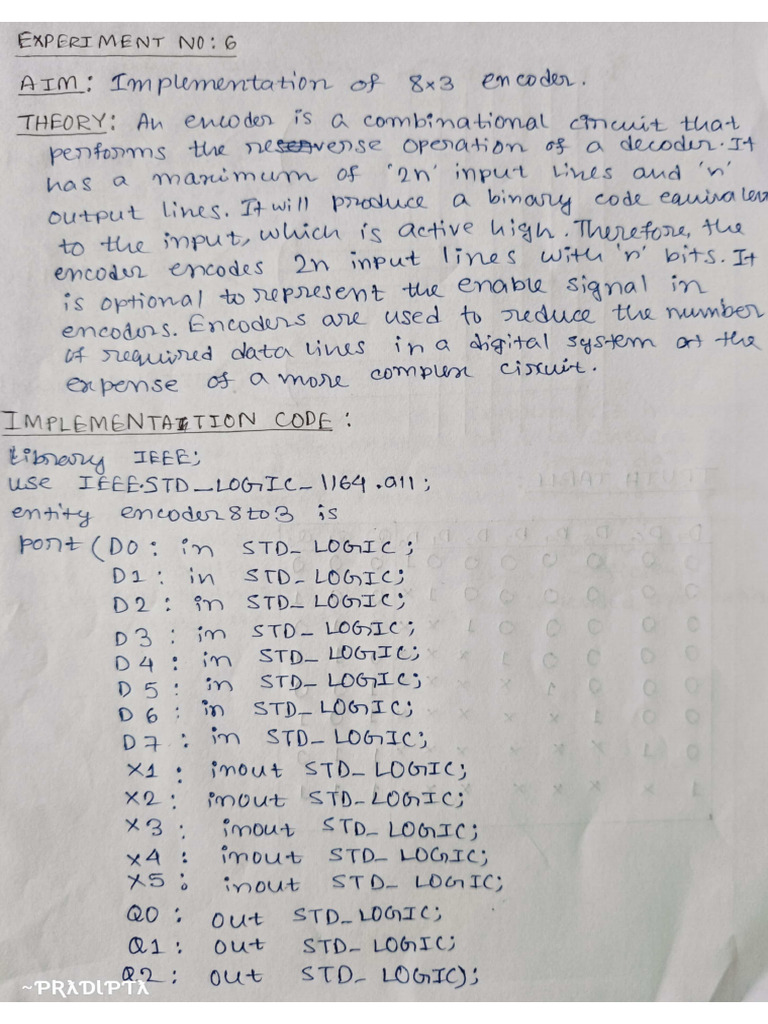 EXPERIMENT NO: 6
AIM: Implementation of 8×3 encoder.
THEORY: An encoder is a combinational circuit that
performs the reverse operation of a decoder. It
has a maximum of '2n' input lines and 'n'
output lines. It will produce a binary code equivalent
to the input, which is active high. Therefore, the
encoder encodes 2n input lines with 'n' bits. It
is optional to represent the enable signal in
encoders. Encoders are used to reduce the number
of required data lines in a digital system at the
expense of a more complex circuit.
IMPLEMENTATION CODE:
library IEEE;
use IEEE.STD_LOGIC_1164.all;
entity encoder8to3 is
port (D0: in STD_LOGIC;
D1: in STD_LOGIC;
D2: in STD_LOGIC;
D3: in STD_LOGIC;
D4: in STD_LOGIC;
D5: in STD_LOGIC;
D6: in STD_LOGIC;
D7: in STD_LOGIC;
X1: inout STD_LOGIC;
X2: inout STD_LOGIC;
X3: inout STD_LOGIC;
X4: inout STD_LOGIC;
X5: inout STD_LOGIC;
Q0: out STD_LOGIC;
Q1: out STD_LOGIC;
Q2: out STD_LOGIC);
~PRADIPTA